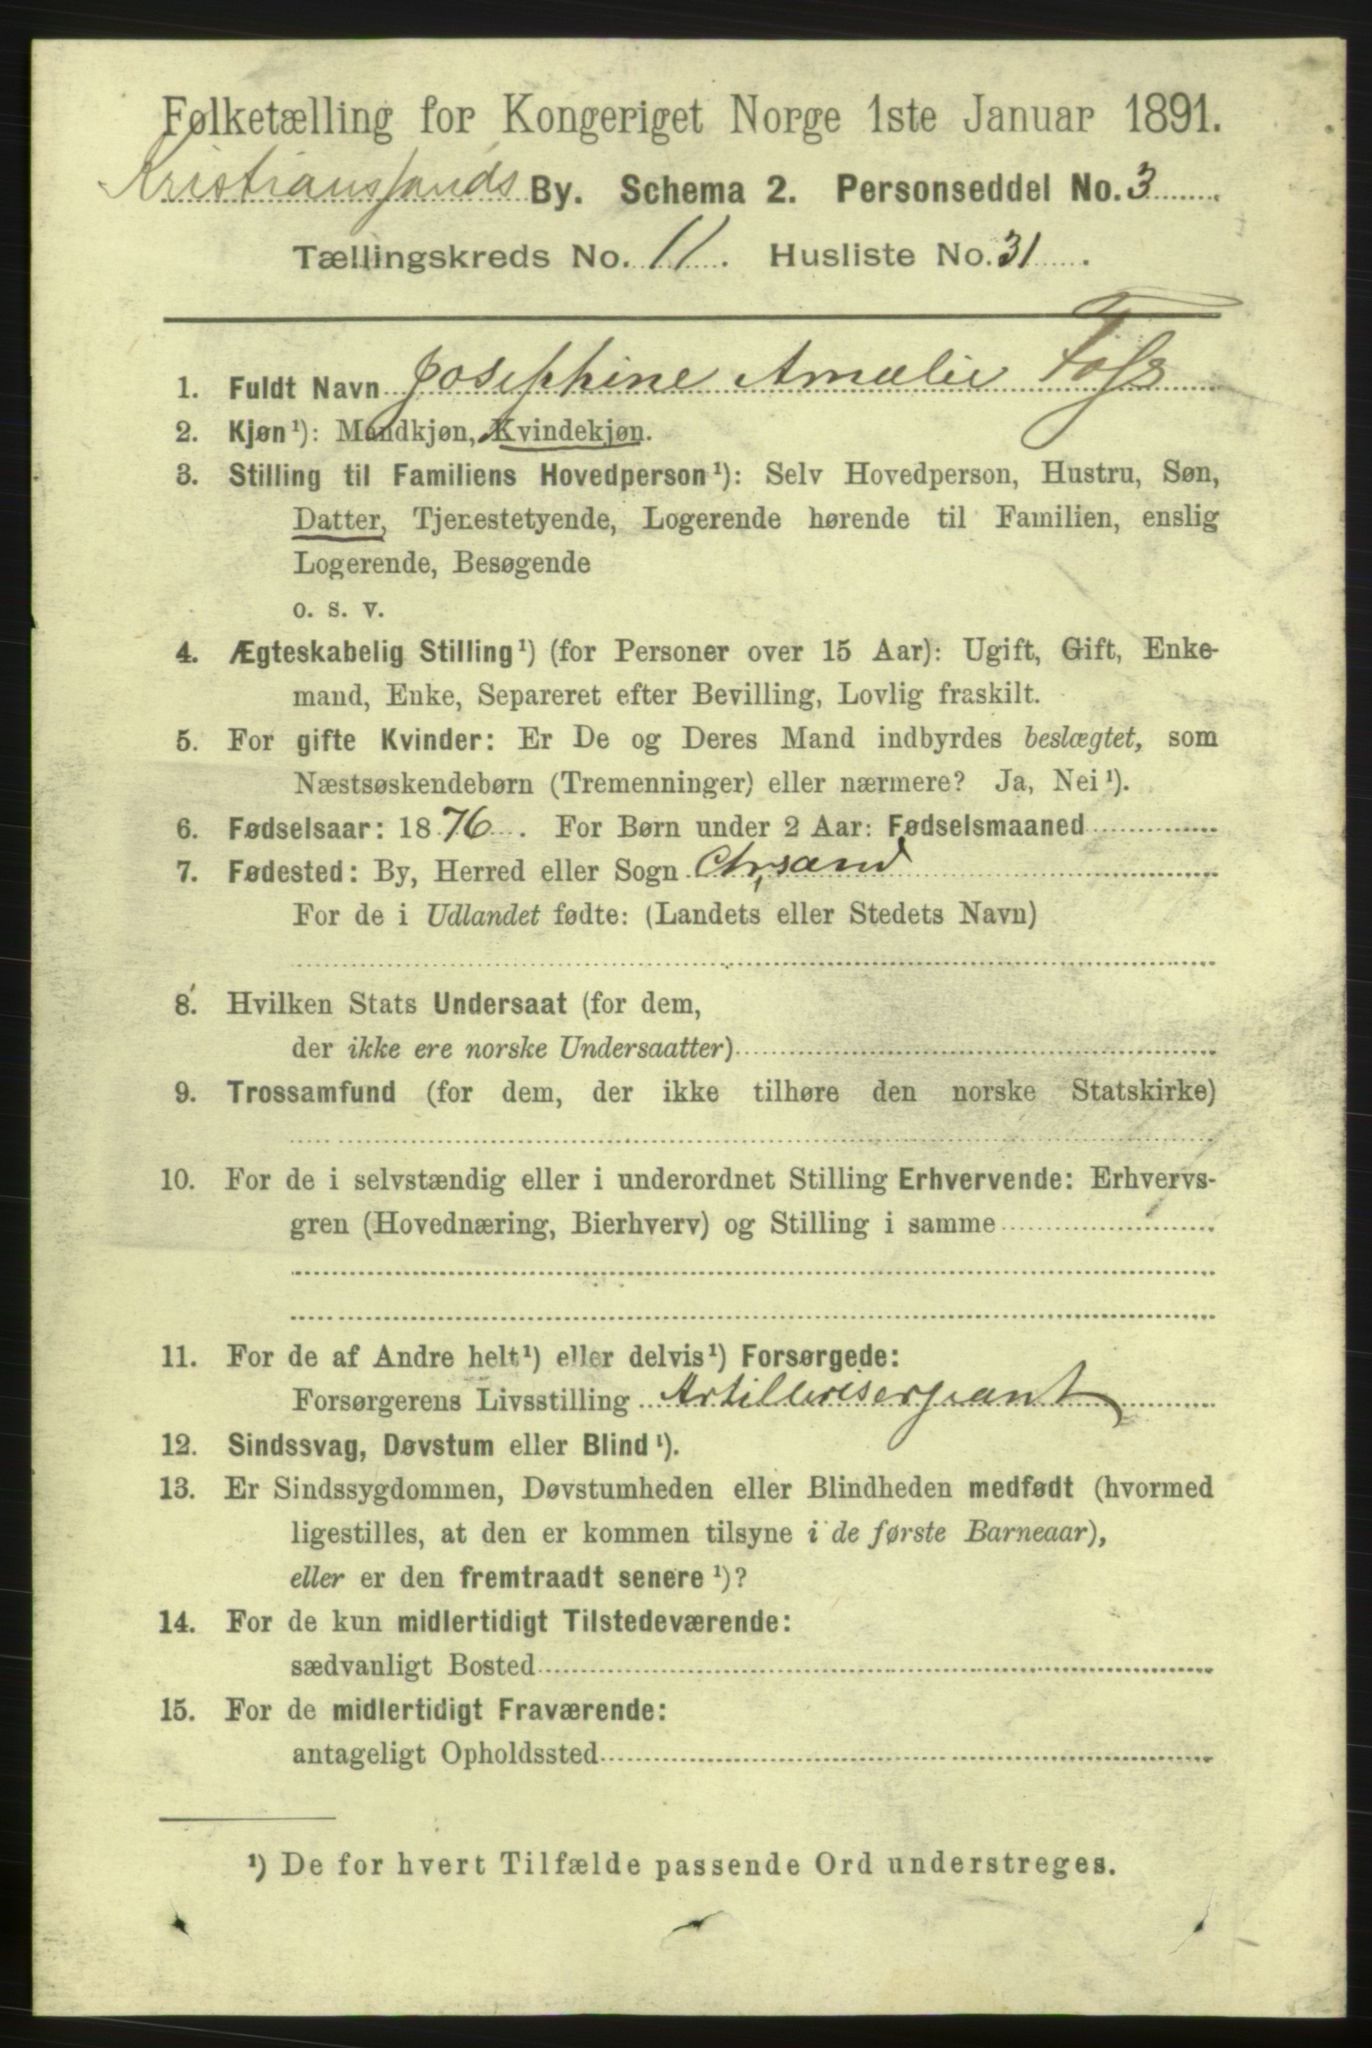 Folketælling for Kongeriget Norge 1ste Januar 1891.
Kristianssands By. Schema 2. Personseddel No. 3
Tællingskreds No. 11. Husliste No. 31.
1. Fuldt Navn Josephine Amalie Foss
2. Kjøn¹): Mandkjøn, Kvindekjøn.
3. Stilling til Familiens Hovedperson¹): Selv Hovedperson, Hustru, Søn,
Datter, Tjenestetyende, Logerende hørende til Familien, enslig
Logerende, Besøgende
o. s. v.
4. Ægteskabelig Stilling¹) (for Personer over 15 Aar): Ugift, Gift, Enke-
mand, Enke, Separeret efter Bevilling, Lovlig fraskilt.
5. For gifte Kvinder: Er De og Deres Mand indbyrdes beslægtet, som
Næstsøskendebørn (Tremenninger) eller nærmere? Ja, Nei¹).
6. Fødselsaar: 1876. For Børn under 2 Aar: Fødselsmaaned
7. Fødested: By, Herred eller Sogn Chrsand
For de i Udlandet fødte: (Landets eller Stedets Navn)
8. Hvilken Stats Undersaat (for dem,
der ikke ere norske Undersaatter)
9. Trossamfund (for dem, der ikke tilhøre den norske Statskirke)
10. For de i selvstændig eller i underordnet Stilling Erhvervende: Erhvervs-
gren (Hovednæring, Bierhverv) og Stilling i samme
11. For de af Andre helt¹) eller delvis¹) Forsørgede:
Forsørgerens Livsstilling Artillerisergeant
12. Sindssvag, Døvstum eller Blind¹).
13. Er Sindssygdommen, Døvstumheden eller Blindheden medfødt (hvormed
ligestilles, at den er kommen tilsyne i de første Barneaar),
eller er den fremtraadt senere¹)?
14. For de kun midlertidigt Tilstedeværende:
sædvanligt Bosted
15. For de midlertidigt Fraværende:
antageligt Opholdssted
¹) De for hvert Tilfælde passende Ord understreges.